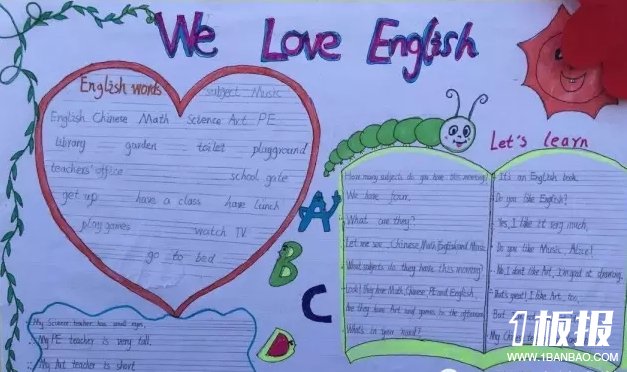 We Love English
English words subject Music
English Chinese Math Science Art PE
library garden toilet playground
teachers' office school gate
get up have a class have lunch
play games watch TV
go to bed
A
B
C
My Science teacher has small eyes,
My PE teacher is very tall.
My Art teacher is short
Let's learn
How many subjects do you have this morning?
We have four.
What are they?
Let me see, Chinese, Math, English and Music
What subjects do they have this morning?
Look! they have Math, Chinese, PE and English
Are they have Art and games in the afternoon
What's in your hand?
It's an English book.
Do you like English?
Yes, I like it very much,
Do you like Music, Alice?
No, I don't like Art, I'm good at drawing.
That's great! I like Art, too,
But
My Chinese
1板报
WWW.1BANBAO.COM